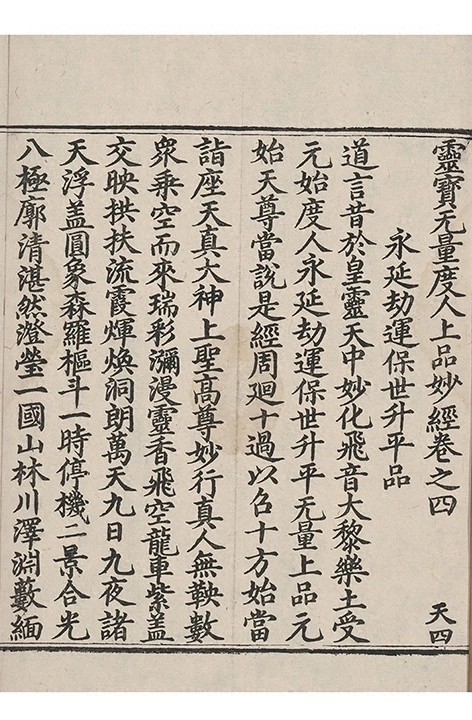 靈寶无量度人上品妙經卷之四
天四
永延劫運保世升平品
道言昔於皇靈天中妙化飛音大黎樂土受
元始度人永延劫運保世升平无量上品元
始天尊當說是經周廻十過以召十方始當
詣座天真大神上聖高尊妙行真人無鞅數
衆乘空而來瑞彩瀰漫靈香飛空龍車紫盖
交映拱扶流霞煇煥洞朗萬天九日九夜諸
天浮盖圓象森羅樞斗一時停機二景合光
八極廓清湛然澄瑩一國山林川澤淵藪緬